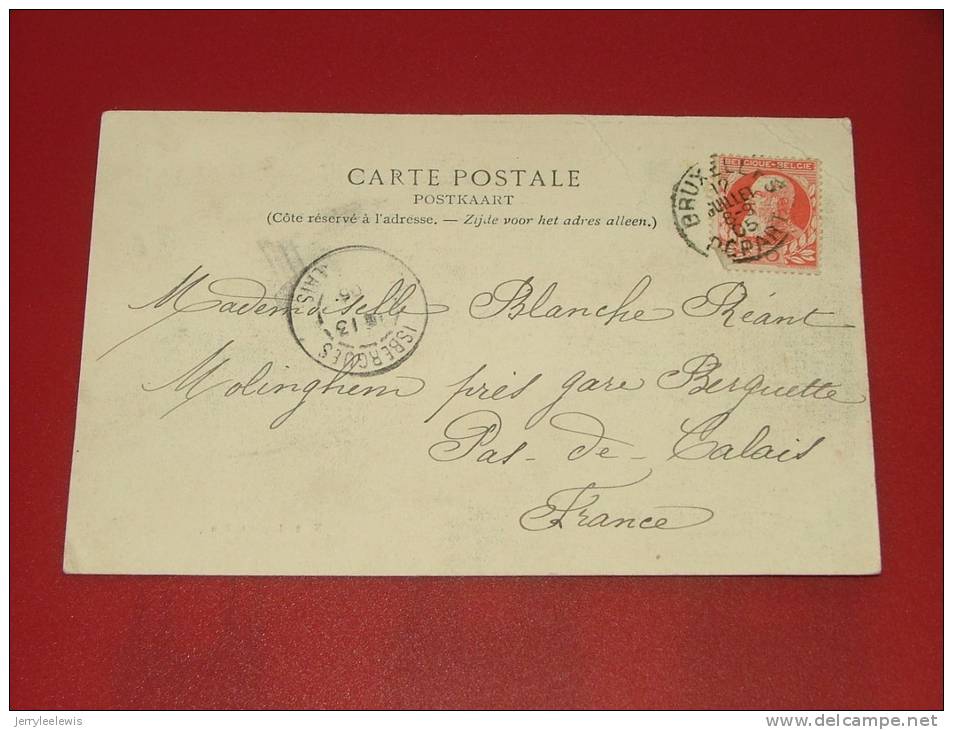 CARTE POSTALE
POSTKAART
(Côte réservé à l'adresse. — Zijde voor het adres alleen.)
BELGIQUE·BELGIE
BRUXELLES
JUILLET
05
DEPART
ISBERGUES
13
Mademoiselle Blanche Réant
Molinghem près gare Berguette
Pas-de-Calais
France
jerryleelewis
www.delcampe.net